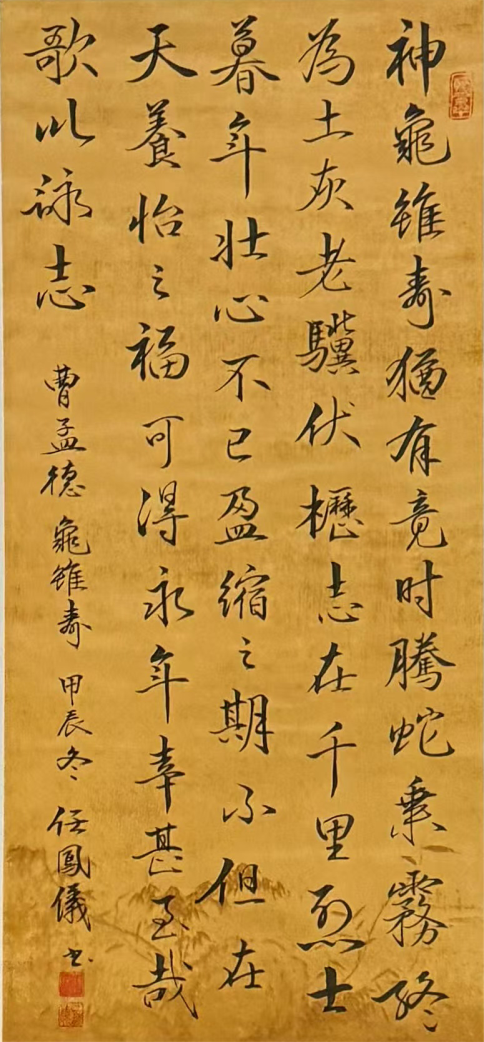 神龜雖壽猶有竟时騰蛇乗霧終
為土灰老驥伏櫪志在千里烈士
暮年壮心不已盈缩之期不但在
天養怡之福可得永年幸甚至哉
歌以詠志
曹孟德 龜雖壽 甲辰冬 任鳳儀书